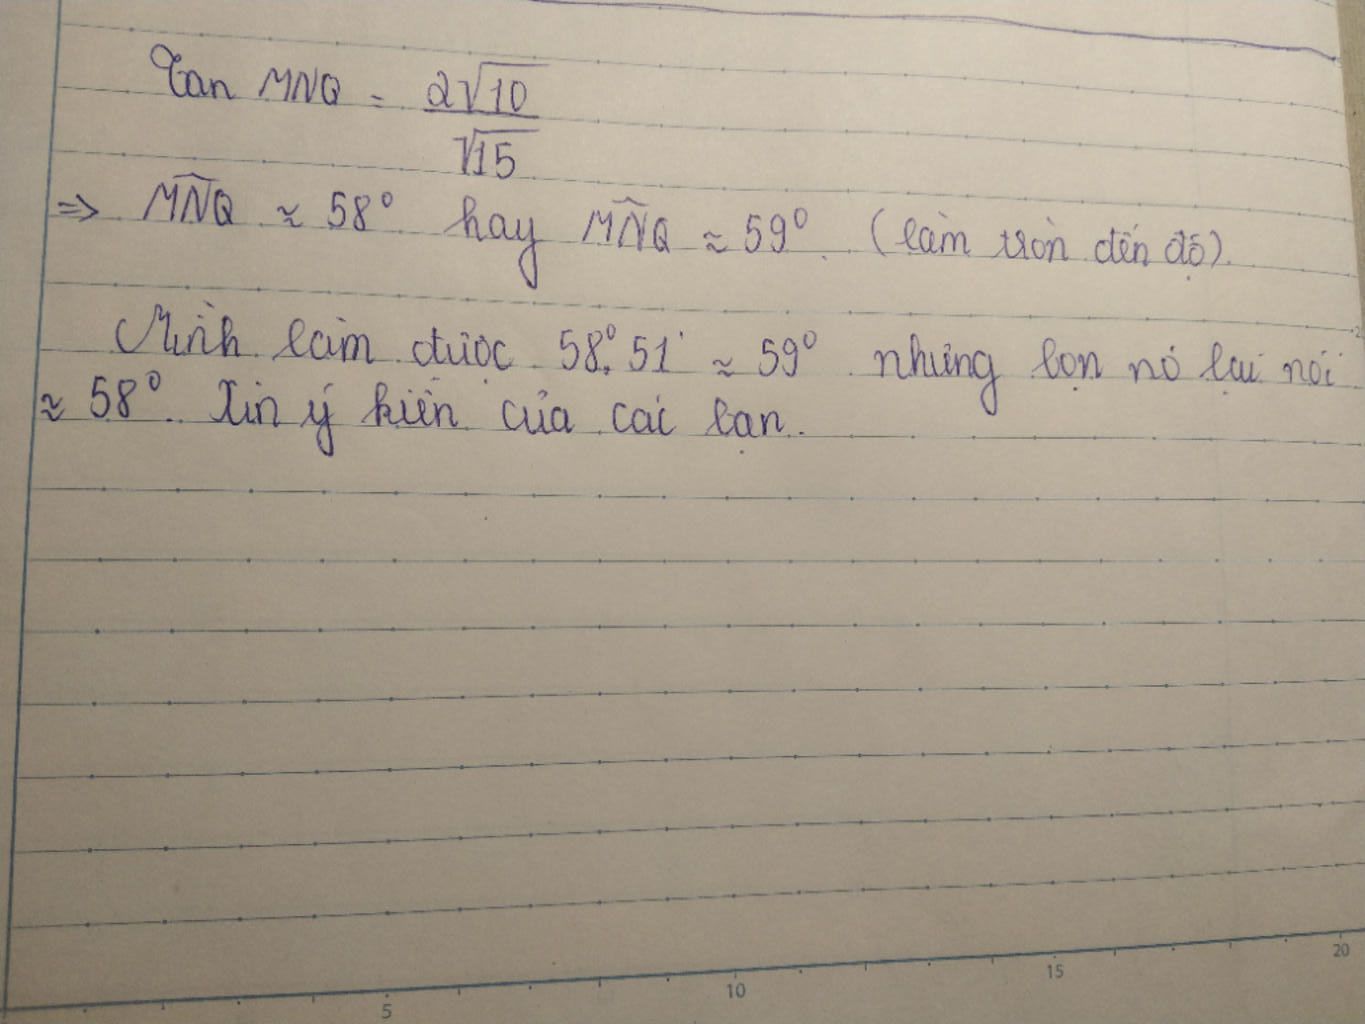 Tan MNQ = 2√10 / √15
=> MN̂Q ≈ 58° hay MN̂Q ≈ 59° (làm tròn đến độ).
Mình làm được 58°51' ≈ 59° nhưng bọn nó lại nói
≈ 58°. Xin ý kiến của các bạn.
5 10 15 20